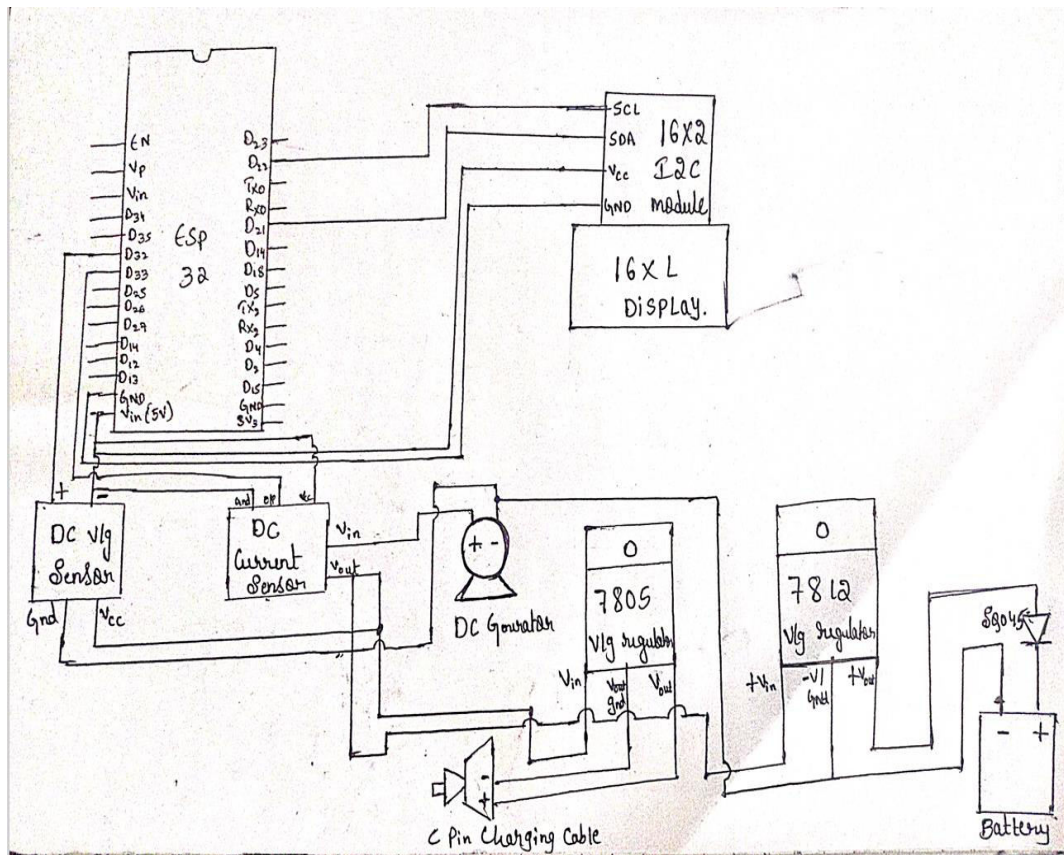 EN
VP
Vin
D34
D35
D32
D33
D25
D26
D27
D14
D12
D13
GND
Vin (5V)
ESP
32
D23
D22
TX0
RX0
D21
D19
D18
D5
TX2
RX2
D4
D2
D15
GND
3V3
SCL
SDA
Vcc
GND
16X2
I2C
module
16XL
DISPLAY.
+
-
DC Vlg
Sensor
Gnd
Vcc
Gnd
Vcc
DC
Current
Sensor
Vin
Vout
+ -
DC Gourator
O
7805
Vlg regulator
Vin
Vout
gnd
Vout
O
7812
Vlg regulator
+Vin
-V/
Gnd
+Vout
- +
Battery
-
+
C Pin Charging Cable